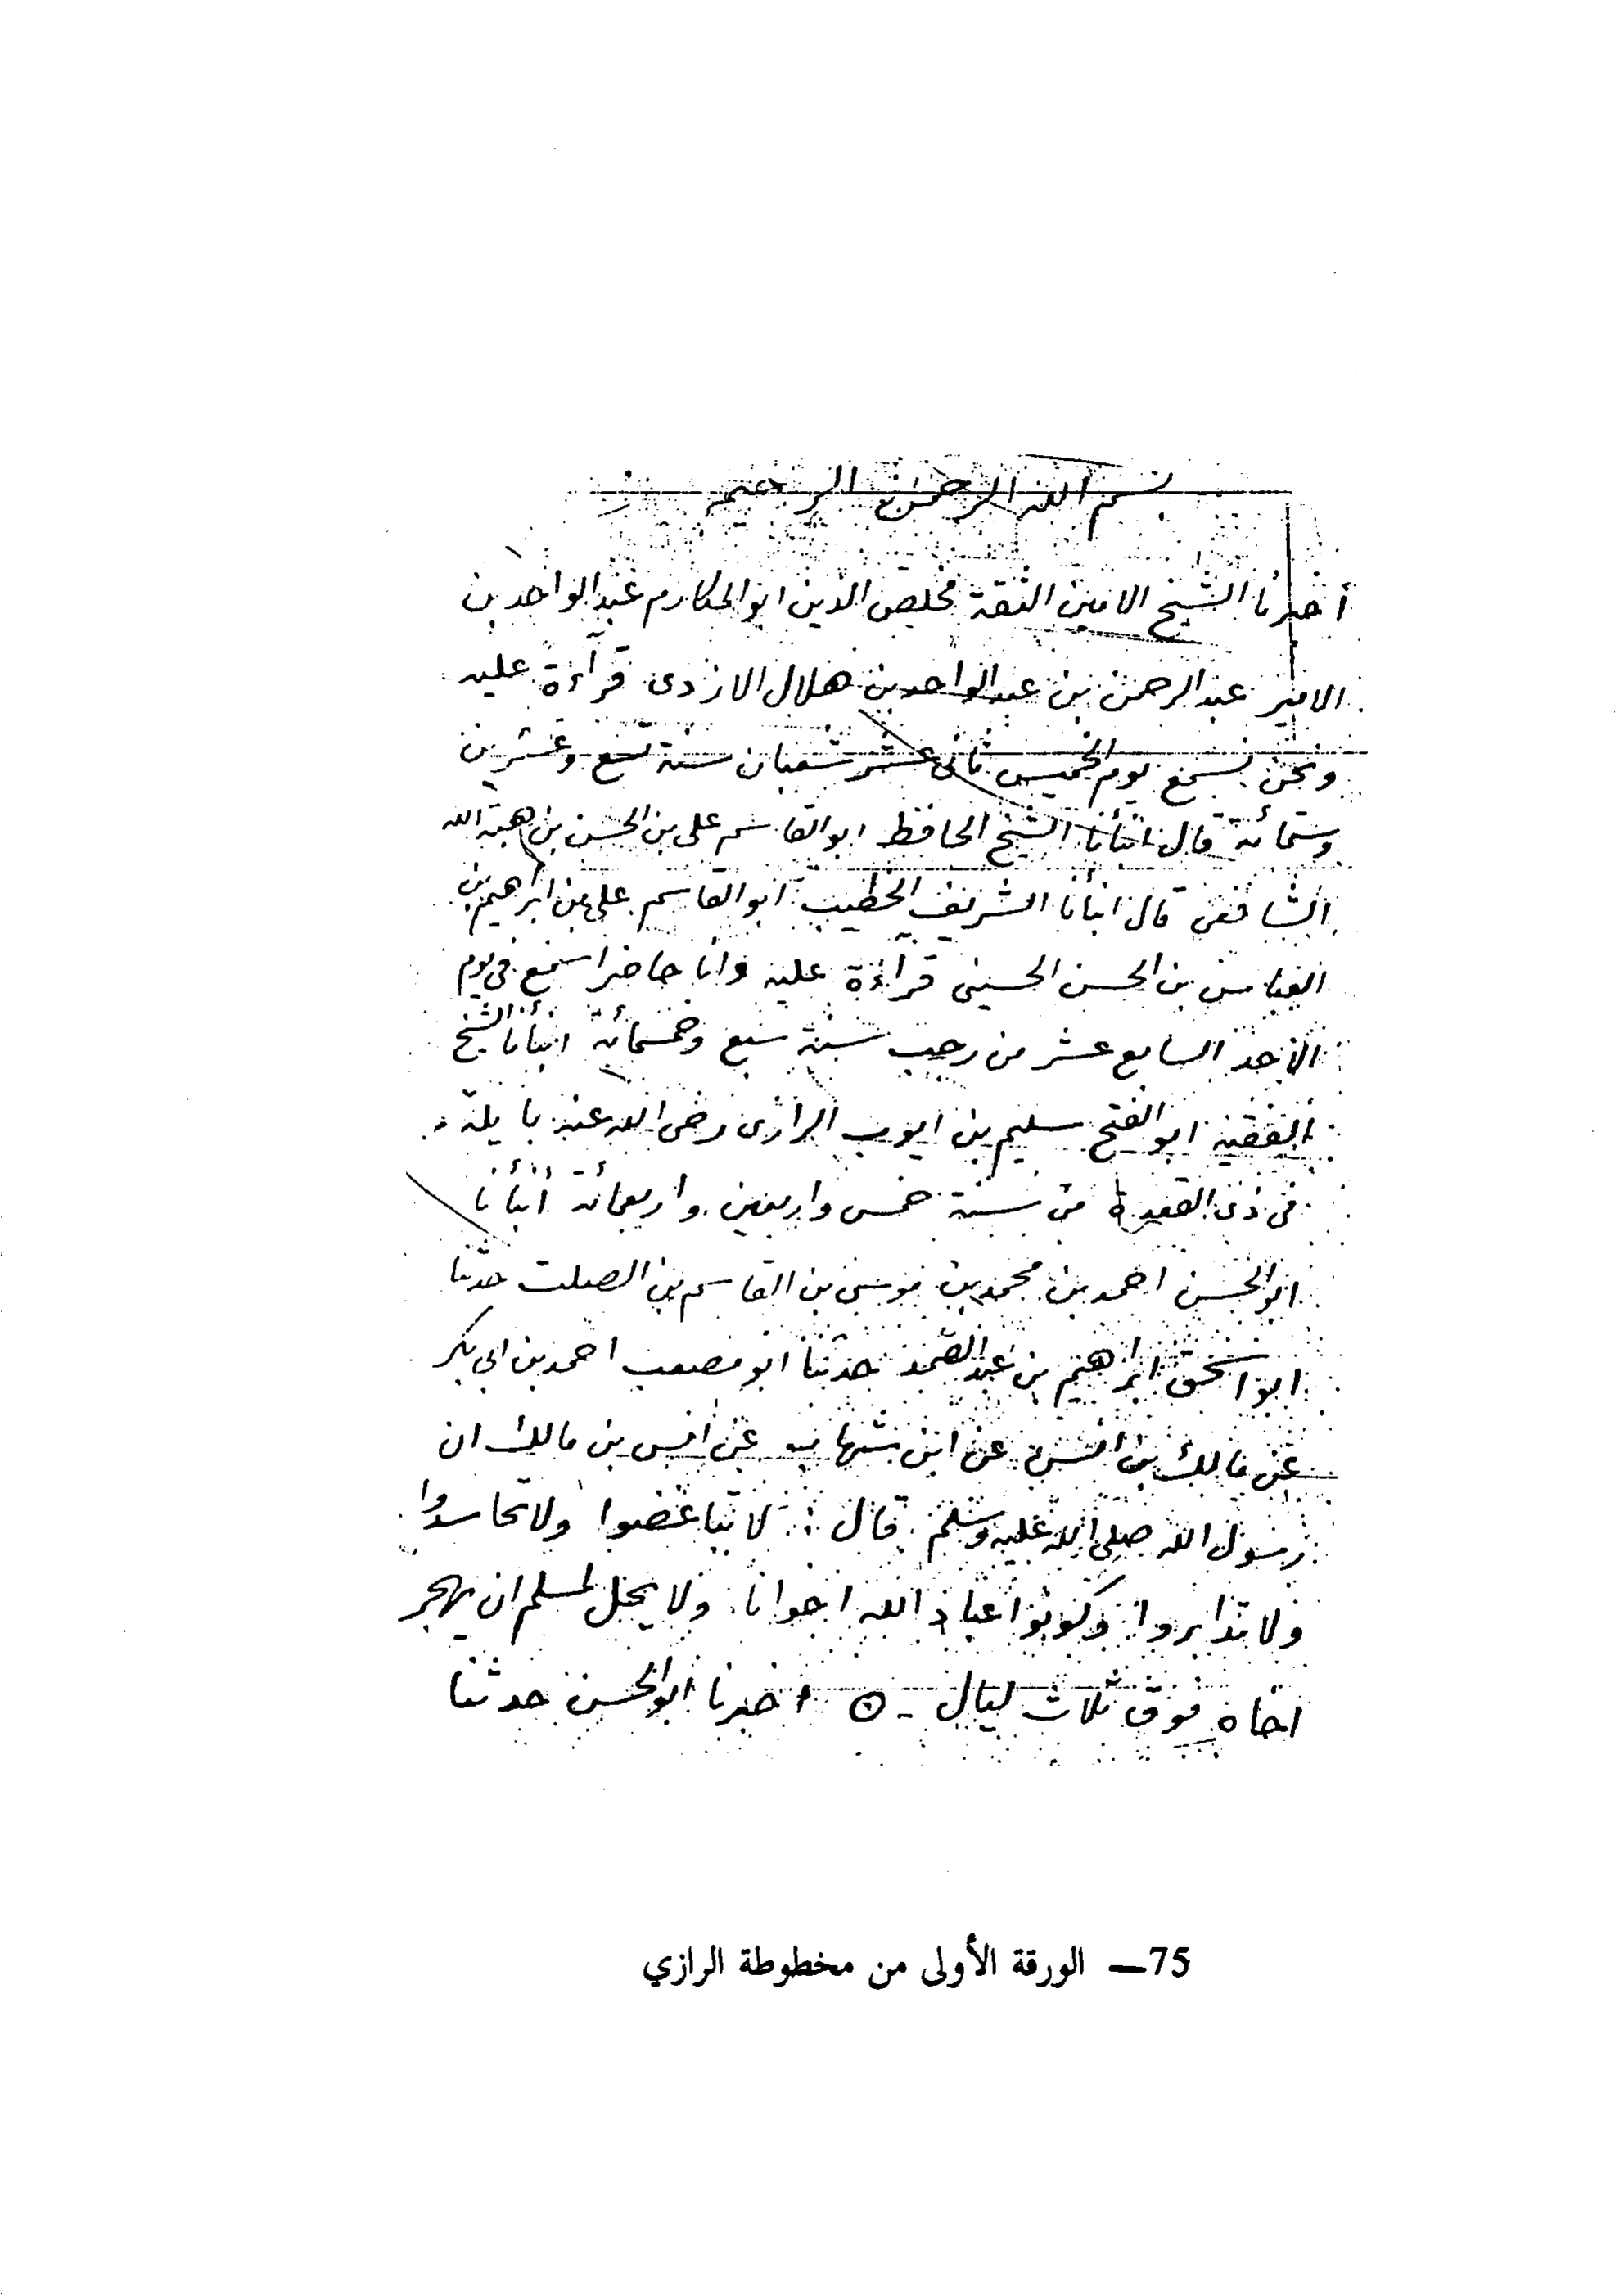 بسم الله الرحمن الرحيم
أخبرنا الشيخ الامين الثقة مخلص الدين ابو المكارم عبد الواحد بن
الامير عبد الرحمن بن عبد الواحد بن هلال الازدى قرآءة عليه
ونحن نسمع يوم الخميس ثانى عشر شعبان سنة تسع وعشرين
وستمائة قال انبأنا الشيخ الحافظ ابو القاسم على بن الحسن بن هبة الله
الشافعى قال انبأنا الشريف الخطيب ابو القاسم على بن ابراهيم بن
العباس بن الحسن الحسينى قرآءة عليه وانا حاضر اسمع فى يوم
الأحد السابع عشر من رجب سنة سبع وخمسمائة انبأنا الشيخ
الفقيه ابو الفتح سليم بن ايوب الرازى رضى الله عنه بايلة
فى ذى القعدة من سنة خمس واربعين واربعمائة أنبأنا
ابو الحسن احمد بن محمد بن موسى بن القاسم بن الصلت حدثنا
ابو اسحق ابراهيم بن عبد الصمد حدثنا ابو مصعب احمد بن ابى بكر
عن مالك بن أنس عن ابن شهاب عن انس بن مالك ان
رسول الله صلى الله عليه وسلم قال : لا تباغضوا ولا تحاسدوا
ولا تدابروا وكونوا عباد الله اخوانا ولا يحل لمسلم ان يهجر
اخاه فوق ثلاث ليال - ه اخبرنا ابو الحسن حدثنا
75— الورقة الأولى من مخطوطة الرازي